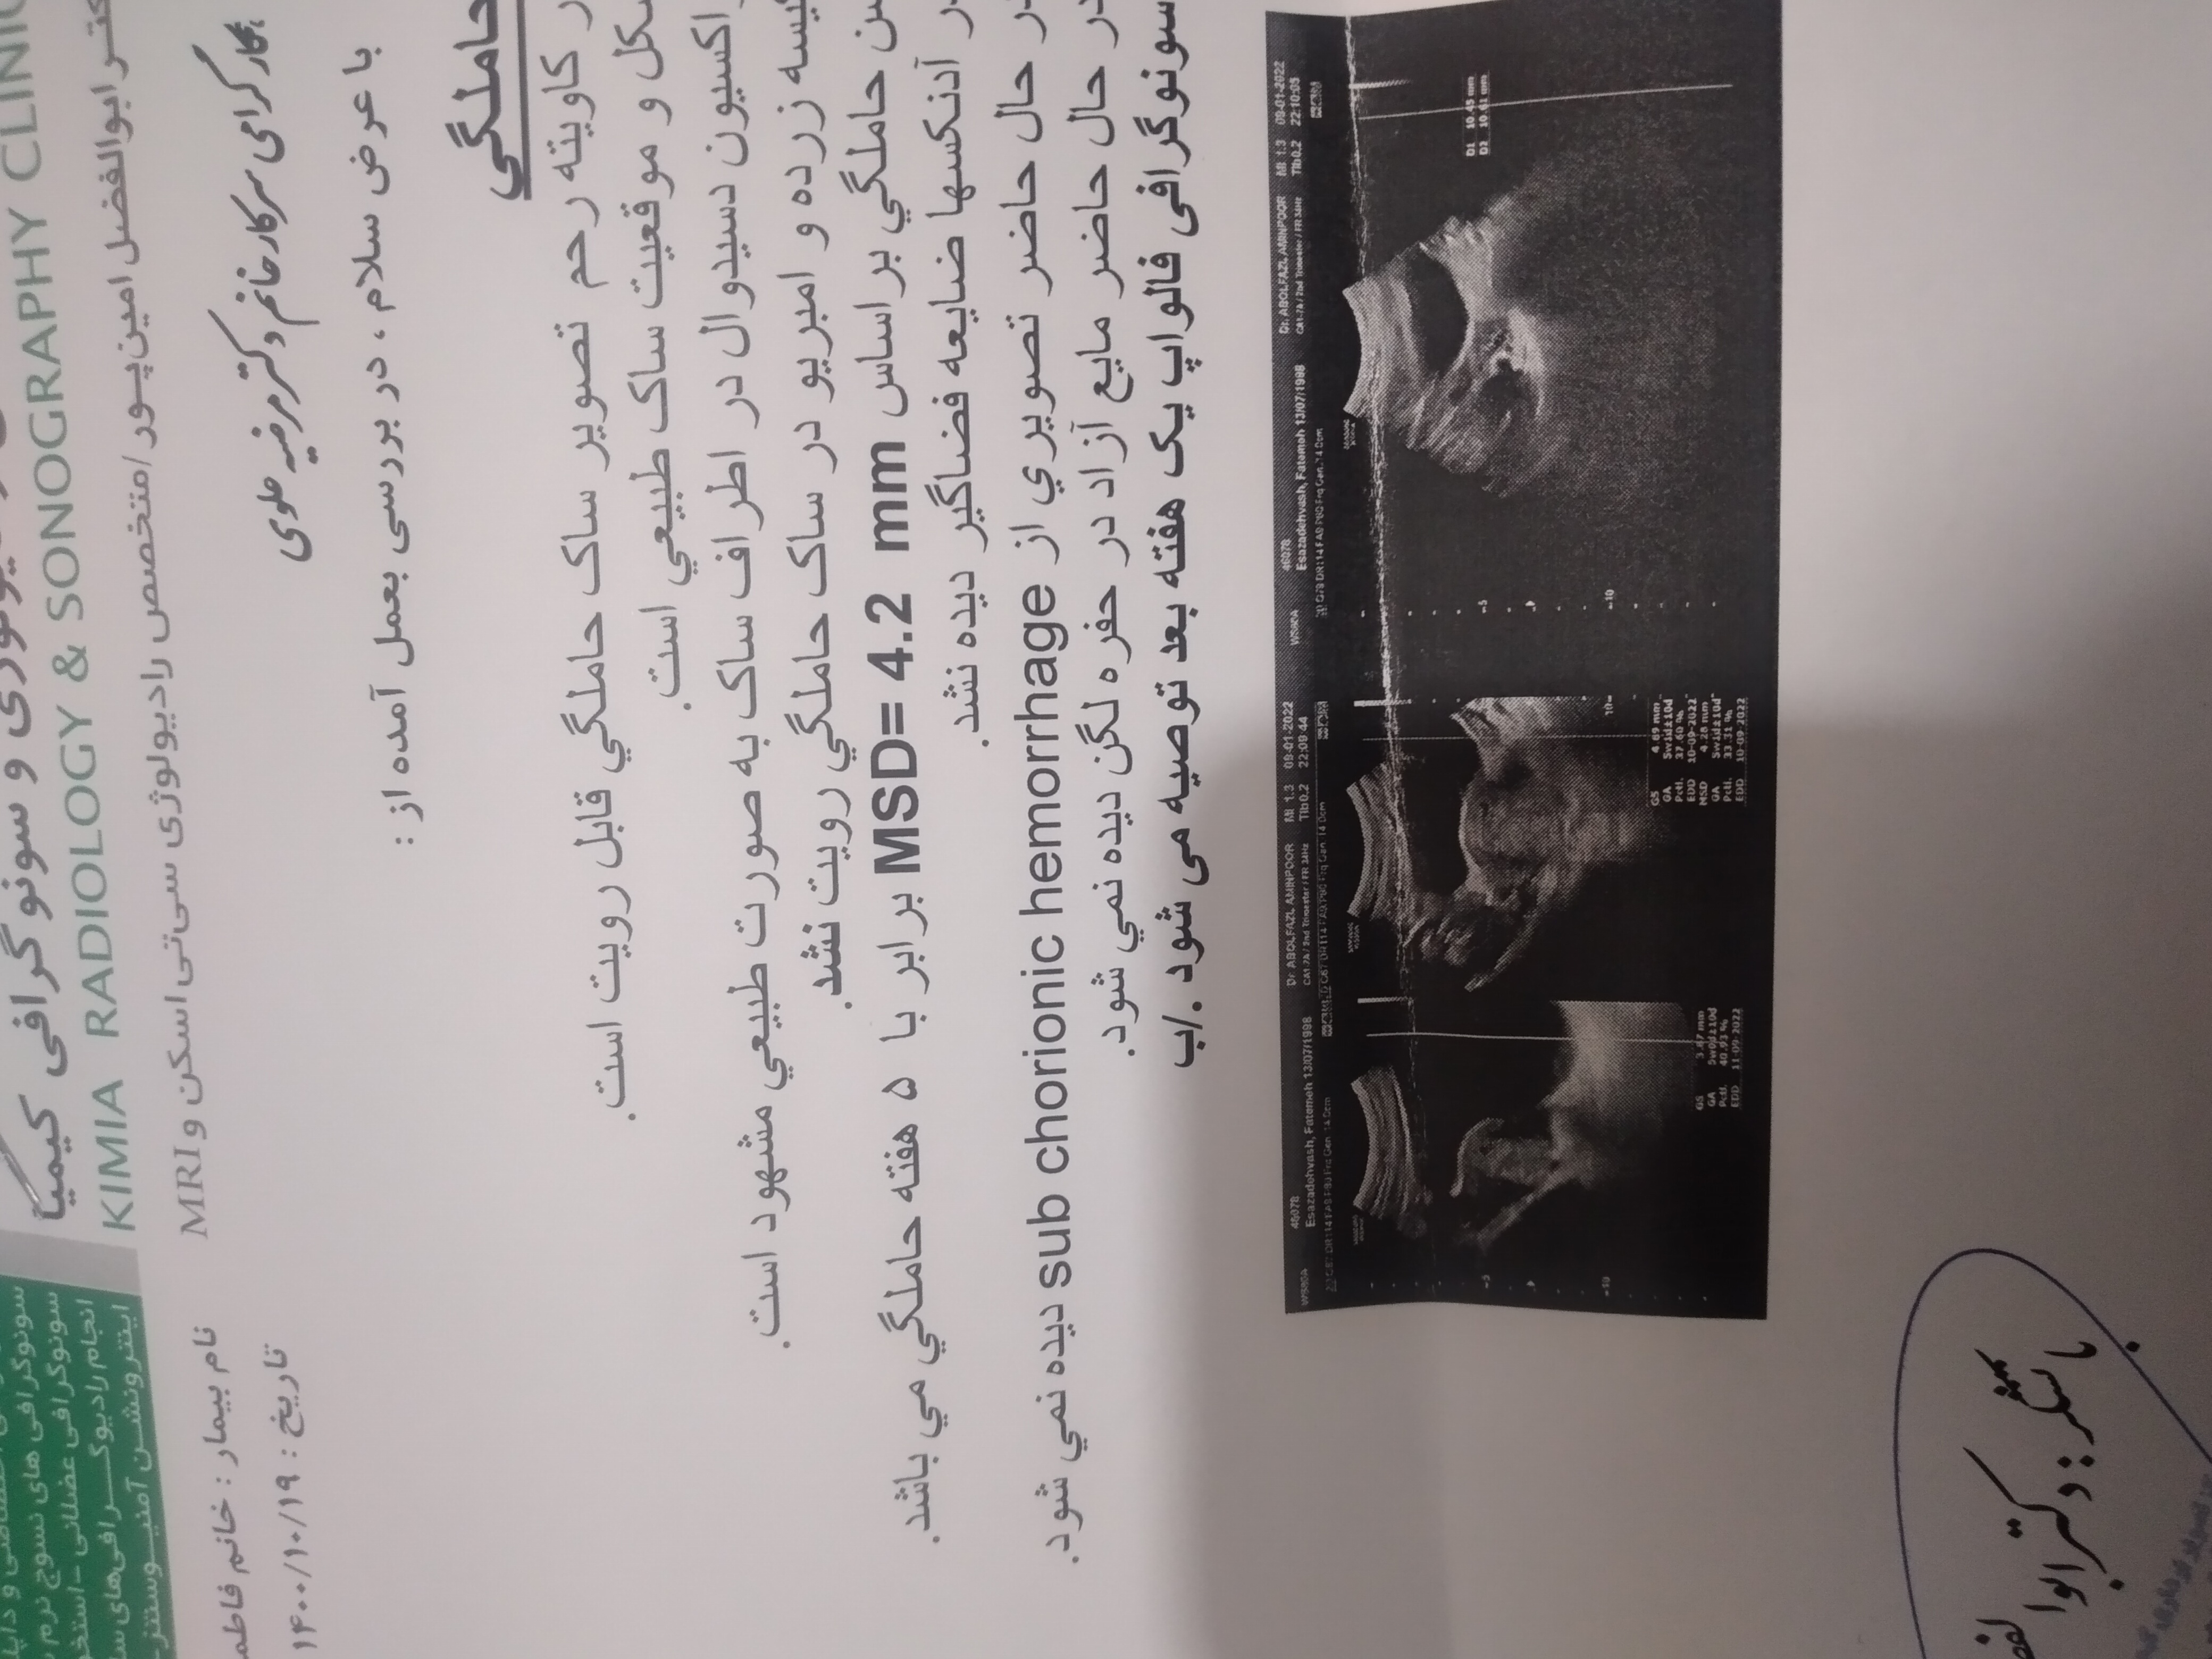 سونوگرافی کیمیا
KIMIA RADIOLOGY & SONOGRAPHY CLINIC
ابوالفضل امین‌پور/متخصص رادیولوژی سی‌تی‌اسکن و MRI
سونوگرافی های نسوج نرم
سونوگرافی عضلانی -
انجام رادیوگرافی‌های
اینترونشن آمنیوسنتز
نام بیمار : خانم
تاریخ : ۱۴۰۰/۱۰/۱۹
همکار گرامی سرکار خانم دکتر مرضیه علوی
با عرض سلام ، در بررسی بعمل آمده از :
حاملگي
کاویته رحم تصویر ساک حاملگي قابل رویت است.
و موقعیت ساک طبیعي است.
اکسیون دسیدوال در اطراف ساک به صورت طبیعي مشهود است.
زرده و امبریو در ساک حاملگي رویت نشد.
حاملگي بر اساس MSD= 4.2 mm برابر با ۵ هفته حاملگي مي باشد.
آدنکسها ضایعه فضاگیر دیده نشد.
حال حاضر تصویري از sub chorionic hemorrhage دیده نمي شود.
حال حاضر مایع آزاد در حفره لگن دیده نمي شود.
سونوگرافی فالواپ یک هفته بعد توصیه می شود ./ب
WS80A
46078
Esazadehvash, Fatemeh 13/07/1998
Dr. ABOLFAZL AMINPOOR
CA1-7A / 2nd Trimester / FR 34Hz
MI 1.3
TIb 0.2
09-01-2022
22:09:44
GS 3.47 mm
GA 5w0d±10d
Pctl. 40.93 %
EDD 11-09-2022
GS 4.69 mm
GA 5w1d±10d
Pctl. 37.60 %
EDD 10-09-2022
MSD 4.28 mm
GA 5w1d±10d
Pctl. 33.31 %
EDD 10-09-2022
WS80A
46078
Esazadehvash, Fatemeh 13/07/1998
Dr. ABOLFAZL AMINPOOR
CA1-7A / 2nd Trimester / FR 34Hz
MI 1.3
TIb 0.2
09-01-2022
22:10:05
D1 10.45 mm
D2 10.61 mm
با تشکر : دکتر ابوا